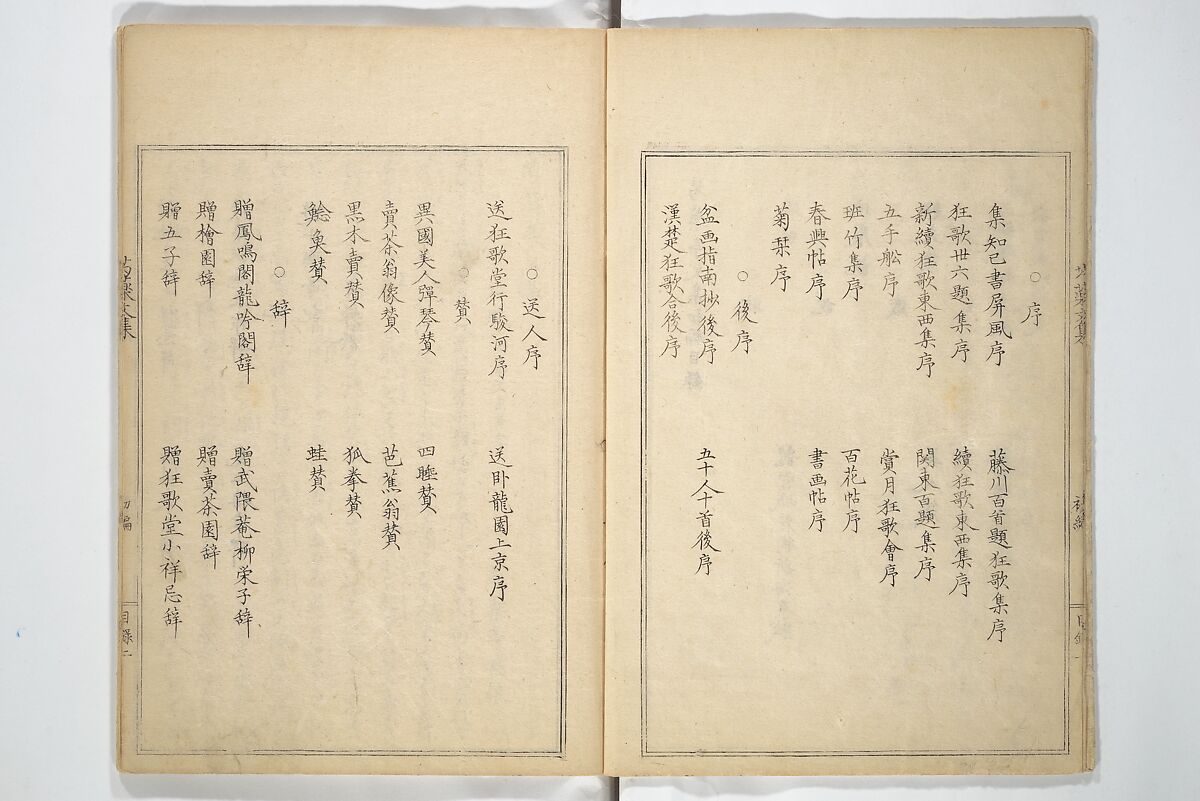 ○序
集知己書屏風序 藤川百首題狂歌集序
狂歌卅六題集序 續狂歌東西集序
新續狂歌東西集序 関東百題集序
五手舩序 賞月狂歌會序
班竹集序 百花帖序
春興帖序 書画帖序
菊栞序
○後序
盆画指南抄後序 五十人十首後序
漢楚狂歌合後序
○送人序
送狂歌堂行駿河序 送卧龍園上京序
○賛
異國美人彈琴賛 四睡賛
賣茶翁像賛 芭蕉翁賛
黒木賣賛 狐拳賛
鯰魚賛 蛙賛
○辞
贈鳳鳴閣龍吟閣辞 贈武隈菴柳栄子辞
贈檜園辞 贈賣茶園辞
贈五子辞 贈狂歌堂小祥忌辞
文集
初編
目録二